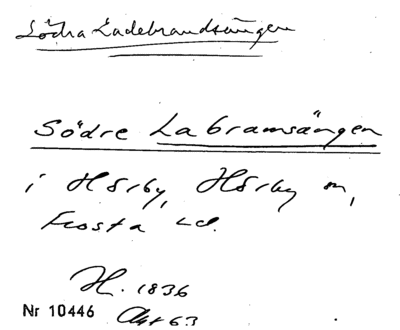 Södra Ladebrandsängen
Södre Labramsängen
i Hörby, Hörby m,
Frosta hd.
H. 1836
Nr 10446 Akt 63